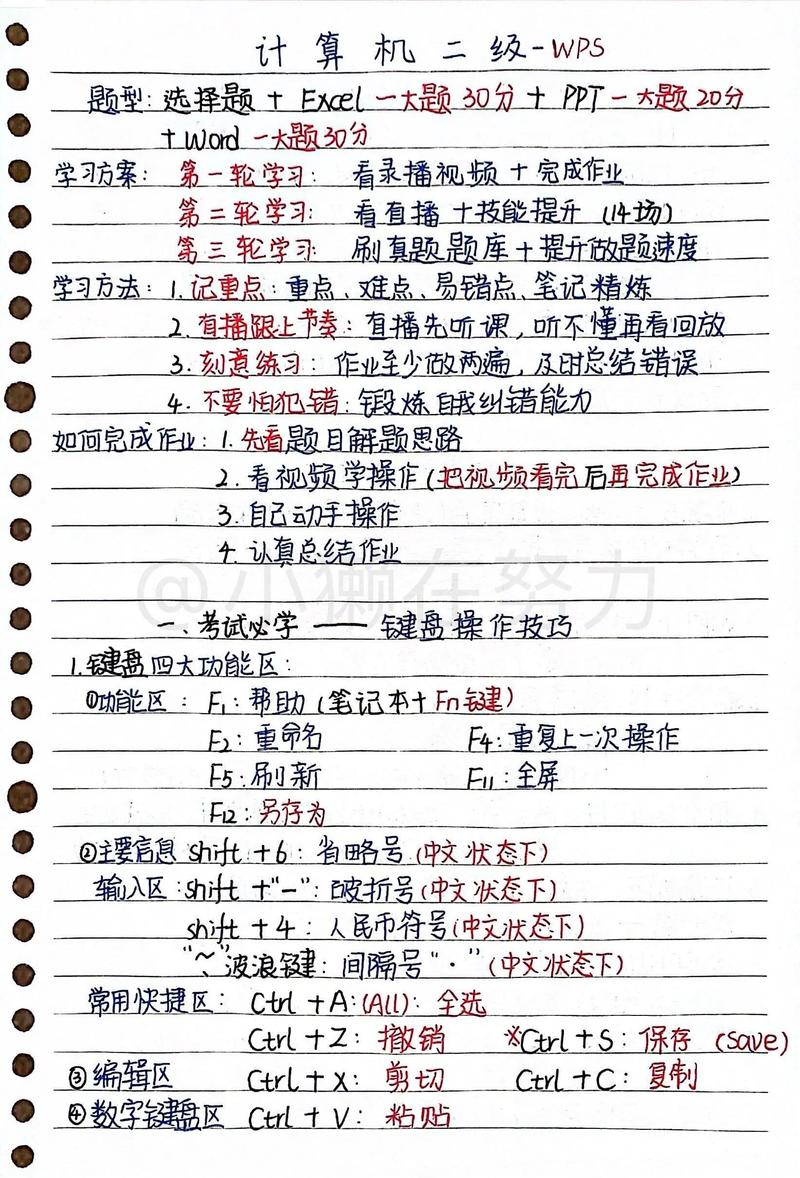 计算机二级-WPS
题型: 选择题 + Excel 一大题 30分 + PPT 一大题 20分
+ Word 一大题30分
学习方案: 第一轮学习: 看录播视频 + 完成作业
第二轮学习: 看直播 + 技能提升 (14场)
第三轮学习: 刷真题题库 + 提升做题速度
学习方法: 1. 记重点: 重点、难点、易错点、笔记精炼
2. 直播跟上节奏: 直播先听课, 听不懂再看回放
3. 刻意练习: 作业至少做两遍, 及时总结错误
4. 不要怕犯错: 锻炼自我纠错能力
如何完成作业: 1. 先看题目解题思路
2. 看视频学操作 (把视频看完后再完成作业)
3. 自己动手操作
4. 认真总结作业
@小獭在努力
一、考试必学 —— 键盘操作技巧
1. 键盘四大功能区:
①功能区: F1: 帮助 (笔记本+Fn键)
F2: 重命名 F4: 重复上一次操作
F5: 刷新 F11: 全屏
F12: 另存为
②主要信息 shift + 6: 省略号 (中文状态下)
输入区: shift +"—": 破折号 (中文状态下)
shift + 4: 人民币符号 (中文状态下)
"~、"波浪键: 间隔号 "·" (中文状态下)
常用快捷区: Ctrl + A: (All): 全选
Ctrl + Z: 撤销 ※Ctrl + S: 保存 (save)
③编辑区 Ctrl + X: 剪切 Ctrl + C: 复制
④数字键盘区 Ctrl + V: 粘贴